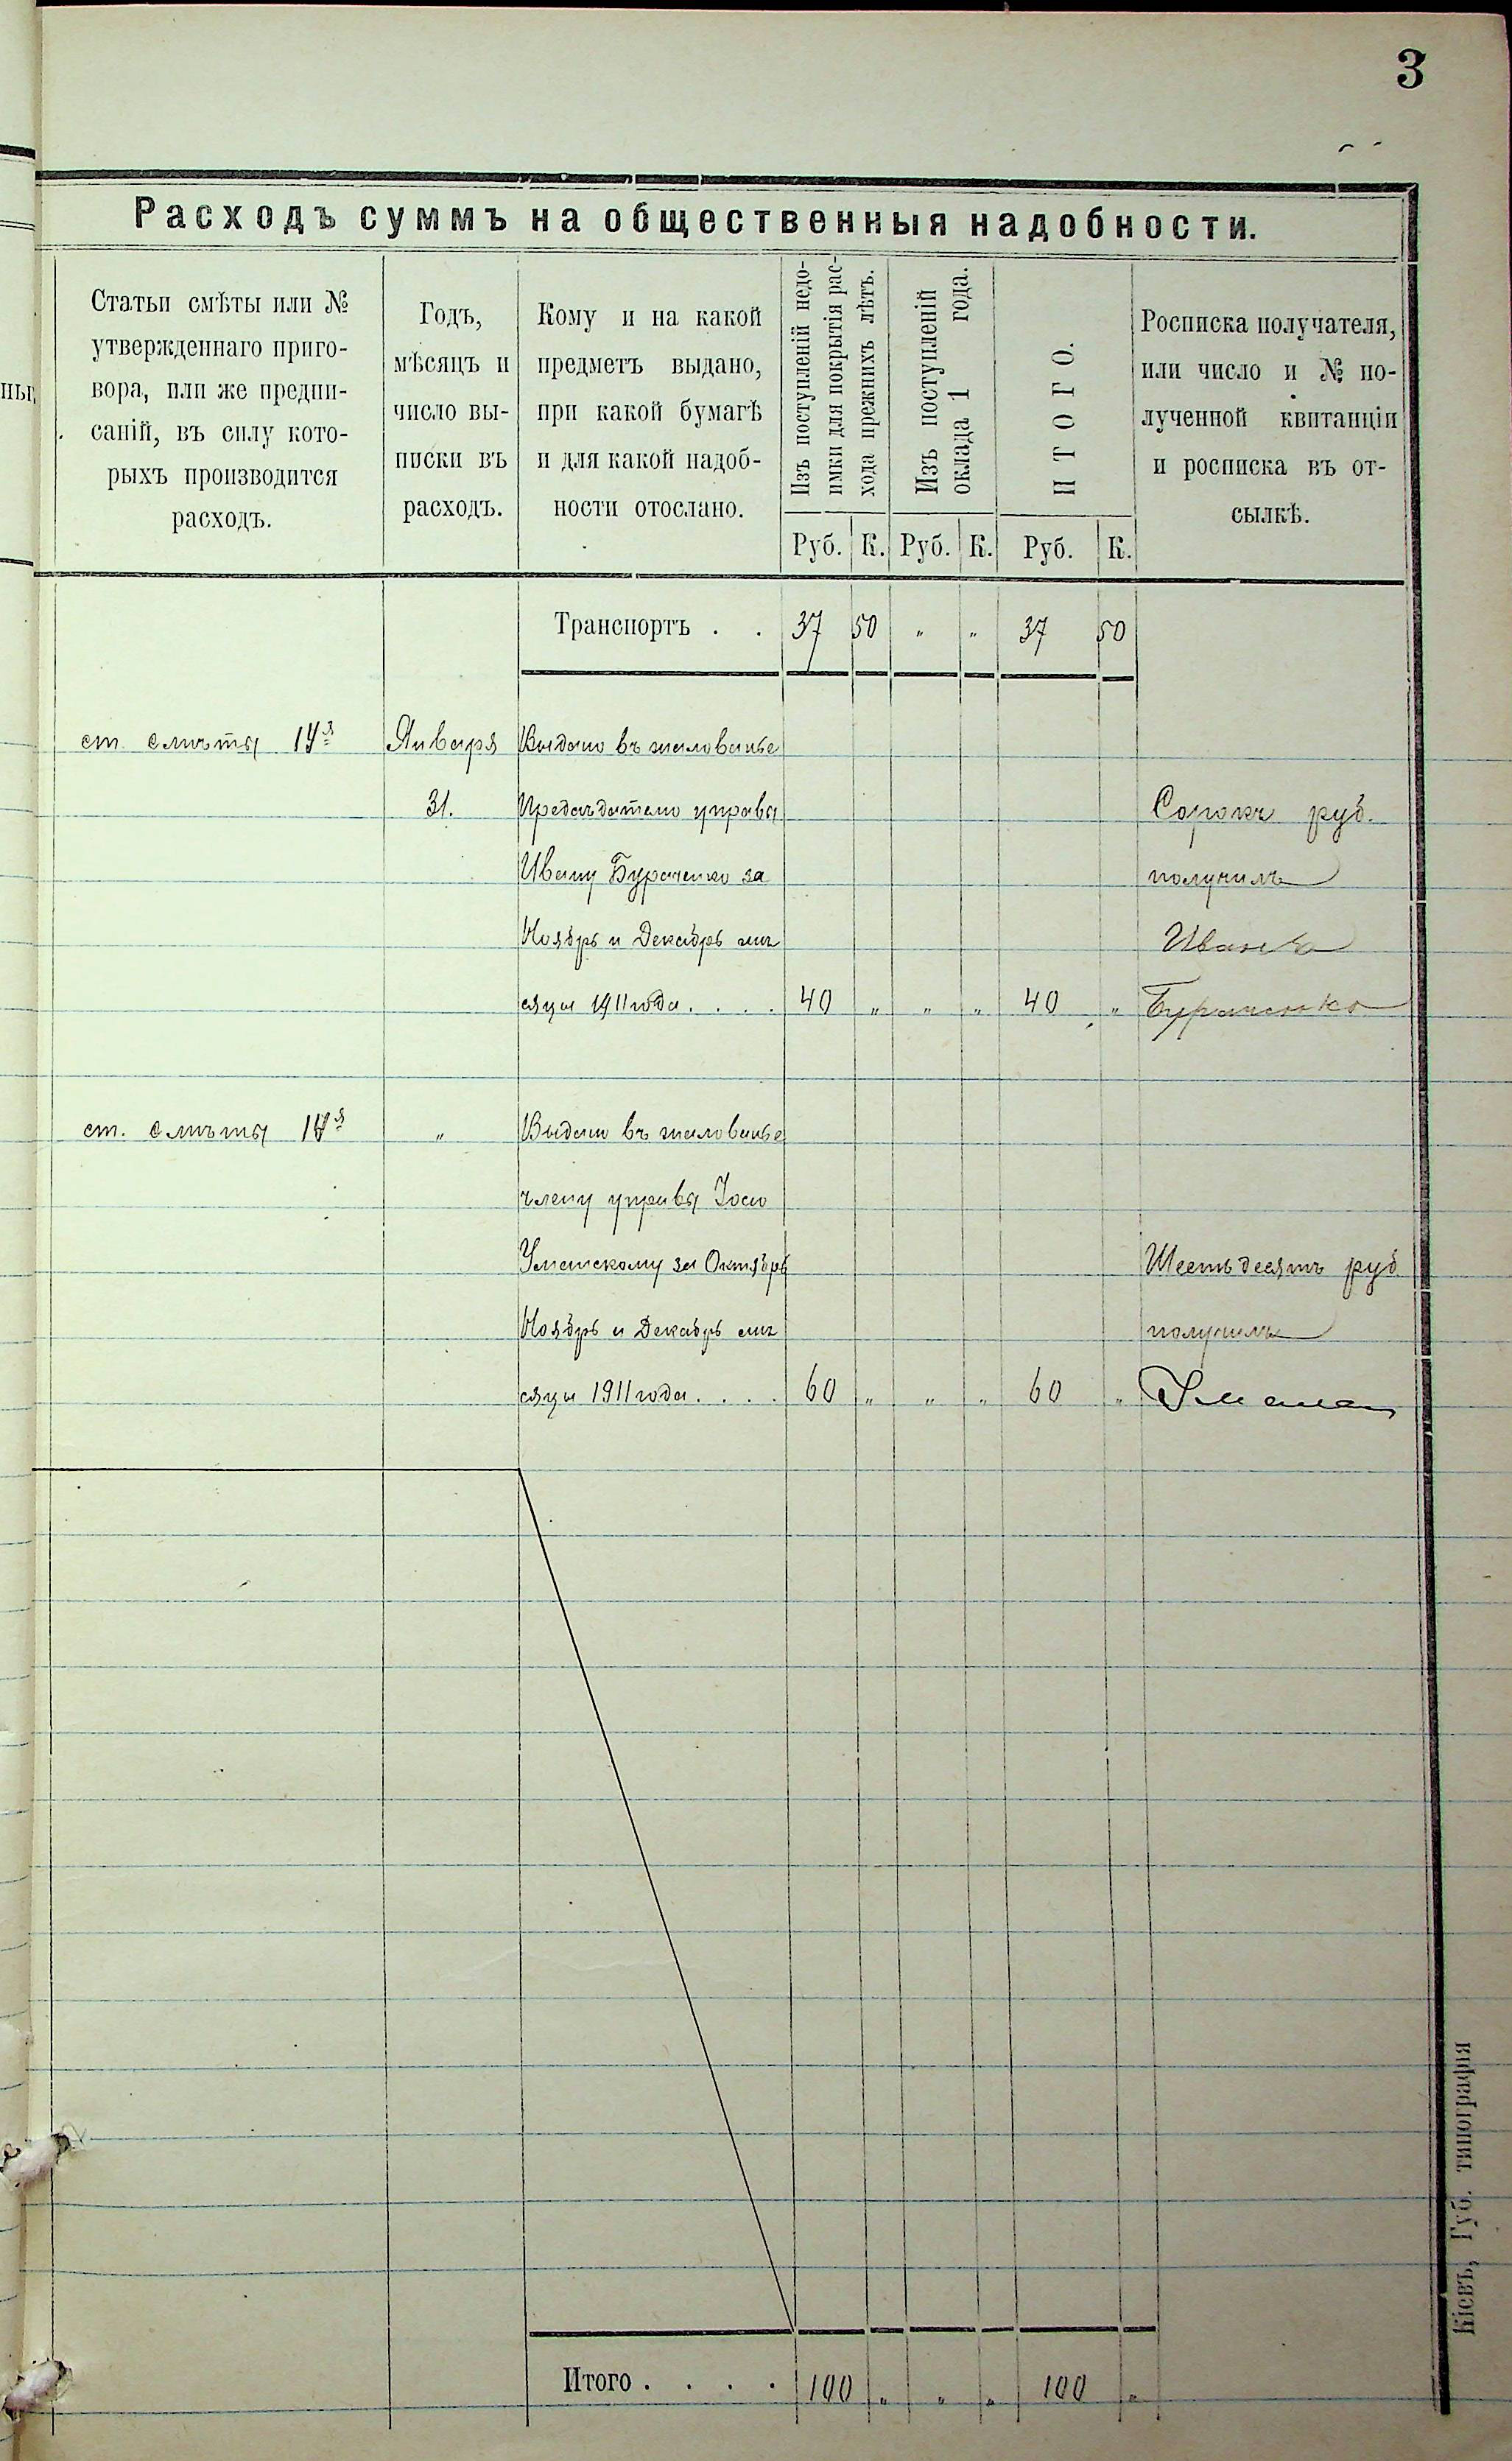 3
Расходъ суммъ на общественныя надобности.
Статьи смѣты или №
утвержденнаго приго-
вора, или же предпи-
саній, въ силу кото-
рыхъ производится
расходъ.
Годъ,
мѣсяцъ и
число вы-
писки въ
расходъ.
Кому и на какой
предметъ выдано,
при какой бумагѣ
и для какой надоб-
ности отослано.
Изъ поступленій недо-
имки для покрытія рас-
хода прежнихъ лѣтъ.
Изъ поступленій
оклада 1 года.
ИТОГО.
Росписка получателя,
или число и № по-
лученной квитанціи
и росписка въ от-
сылкѣ.
Руб. К. Руб. К. Руб. К.
Транспортъ . . 37 50 " " 37 50
ст. смѣты Января Выдано въ жалованье
31. Предсѣдателю управы Сорокъ руб.
Ивану Бураченко за получилъ
Ноябрь и Декабрь мѣ Иванъ
сяцы 1911 года . . . . 40 " " " 40 " Бураченко
ст. смѣты " Выдано въ жалованье
члену управы
Уманскому за Октябрь Шестьдесятъ руб
Ноябрь и Декабрь мѣ получилъ
сяцы 1911 года . . . . 60 " " " 60 "
Итого . . . . 100 " " " 100 "
Кіевъ, Губ. типографія